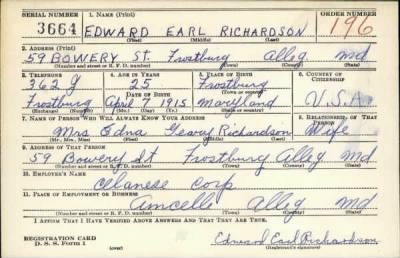 SERIAL NUMBER 1. NAME (Print) ORDER NUMBER
3664 EDWARD EARL RICHARDSON 196
(First) (Middle) (Last)
2. ADDRESS (Print)
59 BOWERY ST. Frostburg Alleg Md
(Number and street or R. F. D. number) (Town) (County) (State)
3. TELEPHONE 4. AGE IN YEARS 5. PLACE OF BIRTH 6. COUNTRY OF CITIZENSHIP
362 J 25 Frostburg
DATE OF BIRTH (Town or county)
Frostburg April 7 1915 Maryland U.S.A.
(Exchange) (Number) (Mo.) (Day) (Yr.) (State or country)
7. NAME OF PERSON WHO WILL ALWAYS KNOW YOUR ADDRESS 8. RELATIONSHIP OF THAT PERSON
Mrs Edna Richardson Wife
(Mr., Mrs., Miss) (First) (Middle) (Last)
9. ADDRESS OF THAT PERSON
59 Bowery St Frostburg Alleg Md
(Number and street or R. F. D. number) (Town) (County) (State)
10. EMPLOYER'S NAME
Celanese Corp
11. PLACE OF EMPLOYMENT OR BUSINESS
Amcelle Alleg Md
(Number and street or R. F. D. number) (Town) (County) (State)
I AFFIRM THAT I HAVE VERIFIED ABOVE ANSWERS AND THAT THEY ARE TRUE.
REGISTRATION CARD
D. S. S. Form 1 (over) Edward Earl Richardson
(Registrant's signature)